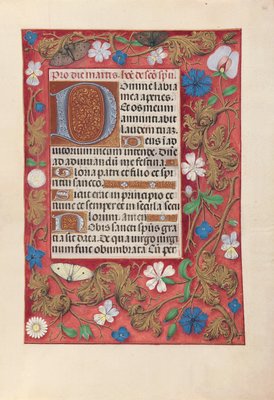 Pro die martis hoē de sc̄o spū.
Domine labia
mea aperies.
Et os meum
annunciabit
laudem tuaz.
Deus in ad
iutorium meum intende. Dn̄e
ad adiuuandū me festina
Gloria patri et filio et spi
ritui sancto.
Sicut erat in principio et
nunc et semper et in secula secu
lorum. Amen
Nobis sancti sp̄us gra
tia sit data. De qua uirgo uirgi
num fuit obumbrata. Cū per